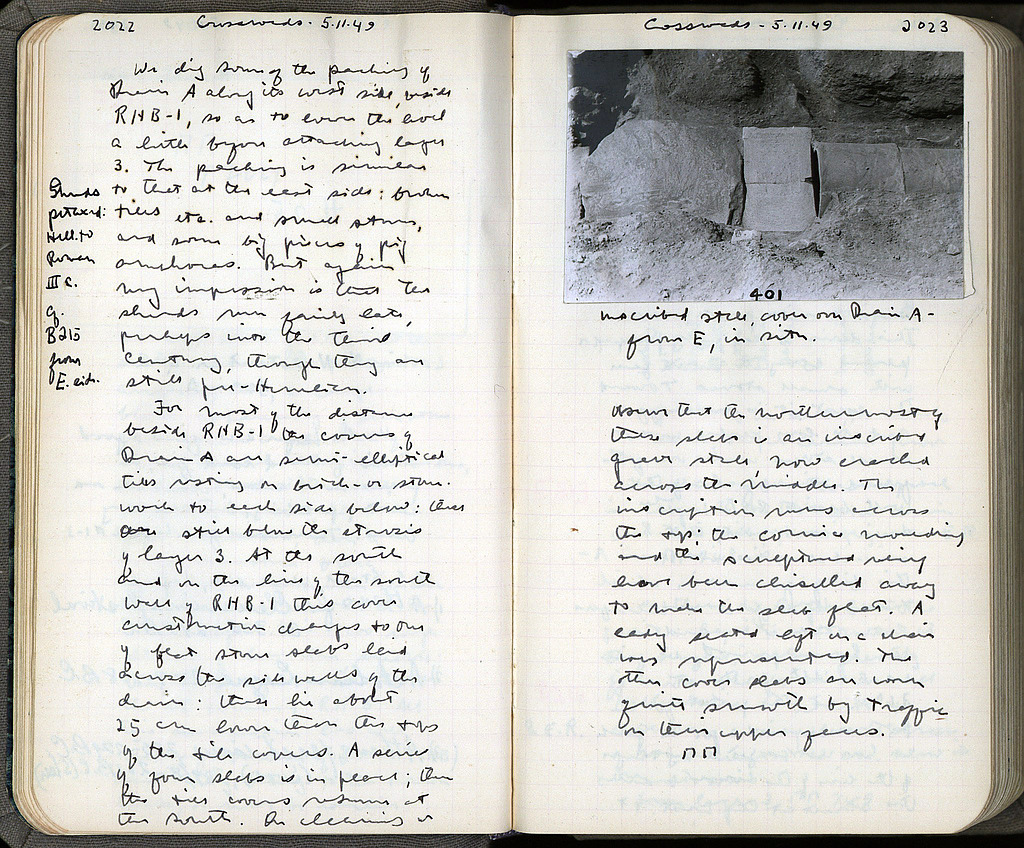 2022 Crossroads - 5.11.49
We dig some of the packing of
Drain A along its west side, beside
RHB-1, so as to lower the level
a little before attacking layer
3. The packing is similar
to that at the east side: broken
tiles etc. and small stones,
and some big pieces of pig
amphoras. But again
my impression is that the
sherds run fairly late,
perhaps into the third
century, though they are
still pre-Herulian.
Sherds
pottery:
Hell. to
Roman
III c.
Cf.
B215
from
E. side.
For most of the distance
beside RHB-1 the covers of
Drain A are semi-elliptical
tiles resting on brick- or stone-
work to each side below: these
are still below the strosis
of layer 3. At the south
end on the line of the south
wall of RHB-1 this cover
construction changes to one
of flat stone slabs laid
across the side walls of the
drain: these lie about
25 cm lower than the tops
of the tile covers. A series
of four slabs is in place; then
the tile covers resume at
the south. In cleaning we
Crossroads - 5.11.49 2023
401
inscribed stele, cover over Drain A -
from E, in situ.
observe that the northernmost of
these slabs is an inscribed
grave stele, now cracked
across the middle. The
inscription runs across
the top: the cornice moulding
and the sculptured relief
have been chiselled away
to make the slab flat. A
lady seated left on a chair
was represented. The
other cover slabs are worn
quite smooth by traffic
on their upper faces.